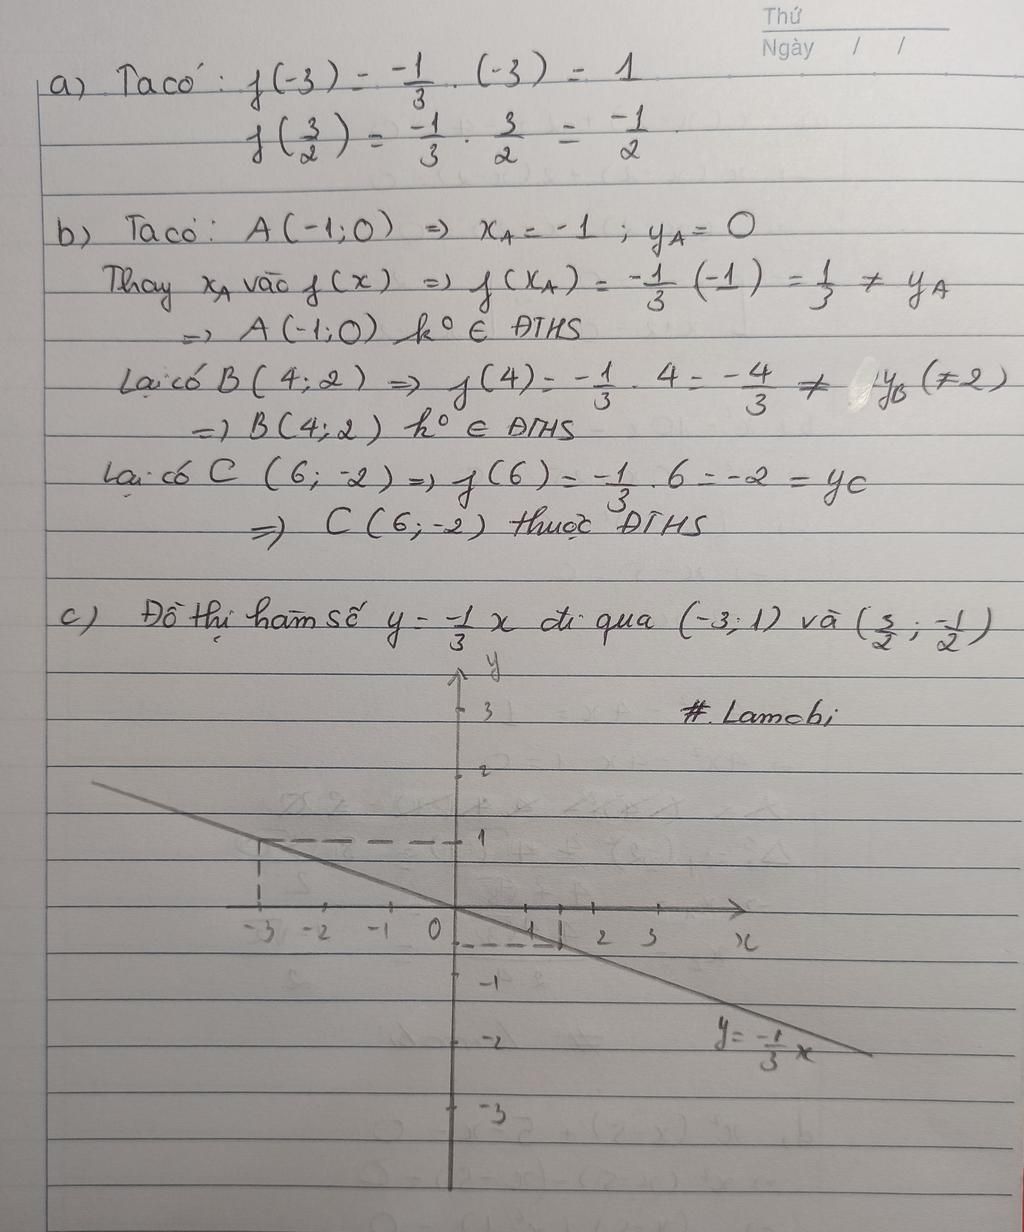 Thứ
Ngày / /
a) Ta có: f(-3) = -1/3 . (-3) = 1
f(3/2) = -1/3 . 3/2 = -1/2
b) Ta có: A(-1;0) => xA = -1 ; yA = 0
Thay xA vào f(x) => f(xA) = -1/3 (-1) = 1/3 ≠ yA
=> A(-1;0) k° ∈ ĐTHS
Lại có B(4;2) => f(4) = -1/3 . 4 = -4/3 ≠ yB (≠2)
=> B(4;2) k° ∈ ĐTHS
Lại có C (6;-2) => f(6) = -1/3 . 6 = -2 = yC
=> C(6;-2) thuộc ĐTHS
c) Đồ thị hàm số y = -1/3 x đi qua (-3;1) và (3/2; -1/2)
y
3
# Lamchi
2
1
-3 -2 -1 0 1 2 3 x
-1
-2
y = -1/3 x
-3